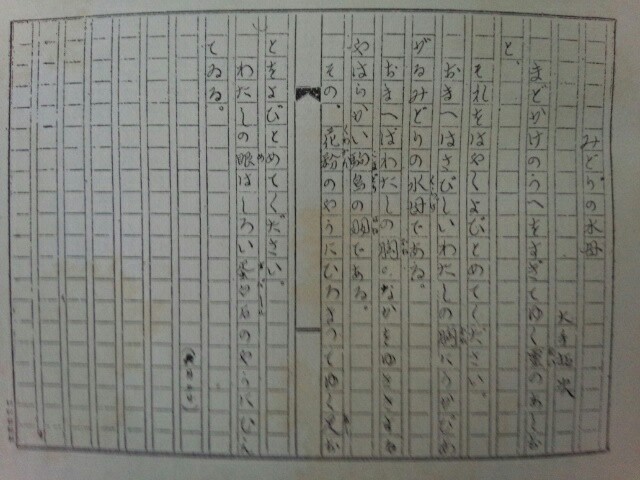 みどりの水母
大手拓次
まどかけのうへをすぎてゆく のあしお
と、
それをはやくよびとめてください。
おまへはさびしいわたしの胸にうかびあ
がるみどりの水母である。
おまへはわたしの胸のなかをゆききする
やはらかい の である。
その、花粉のやうにひろまつてゆく足お
とをよびとめてください。
わたしの眼はしろい のやうに
てゐる。